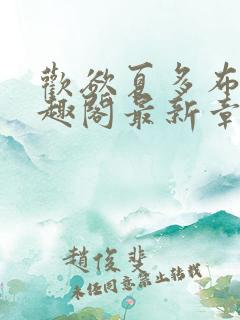 歡欲夏多布
趣閣最新章
趙俊斐
未经同意禁止转载